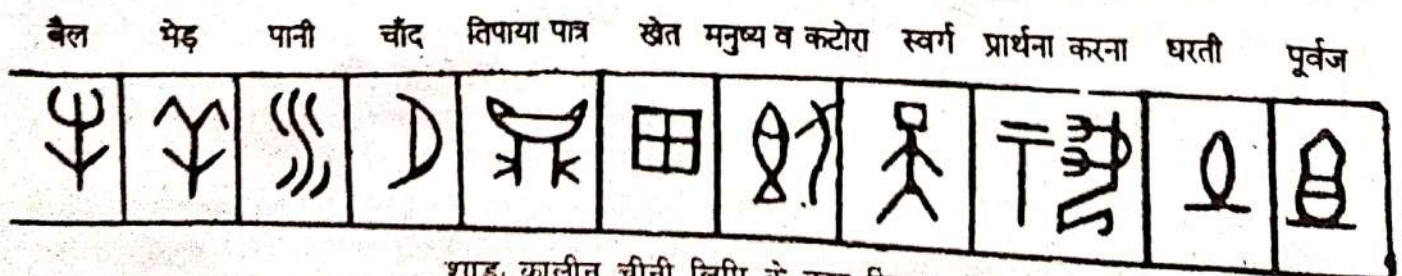 बैल भेड़ पानी चाँद तिपाया पात्र खेत मनुष्य व कटोरा स्वर्ग प्रार्थना करना धरती पूर्वज
शाङ कालीन चीनी लिपि के